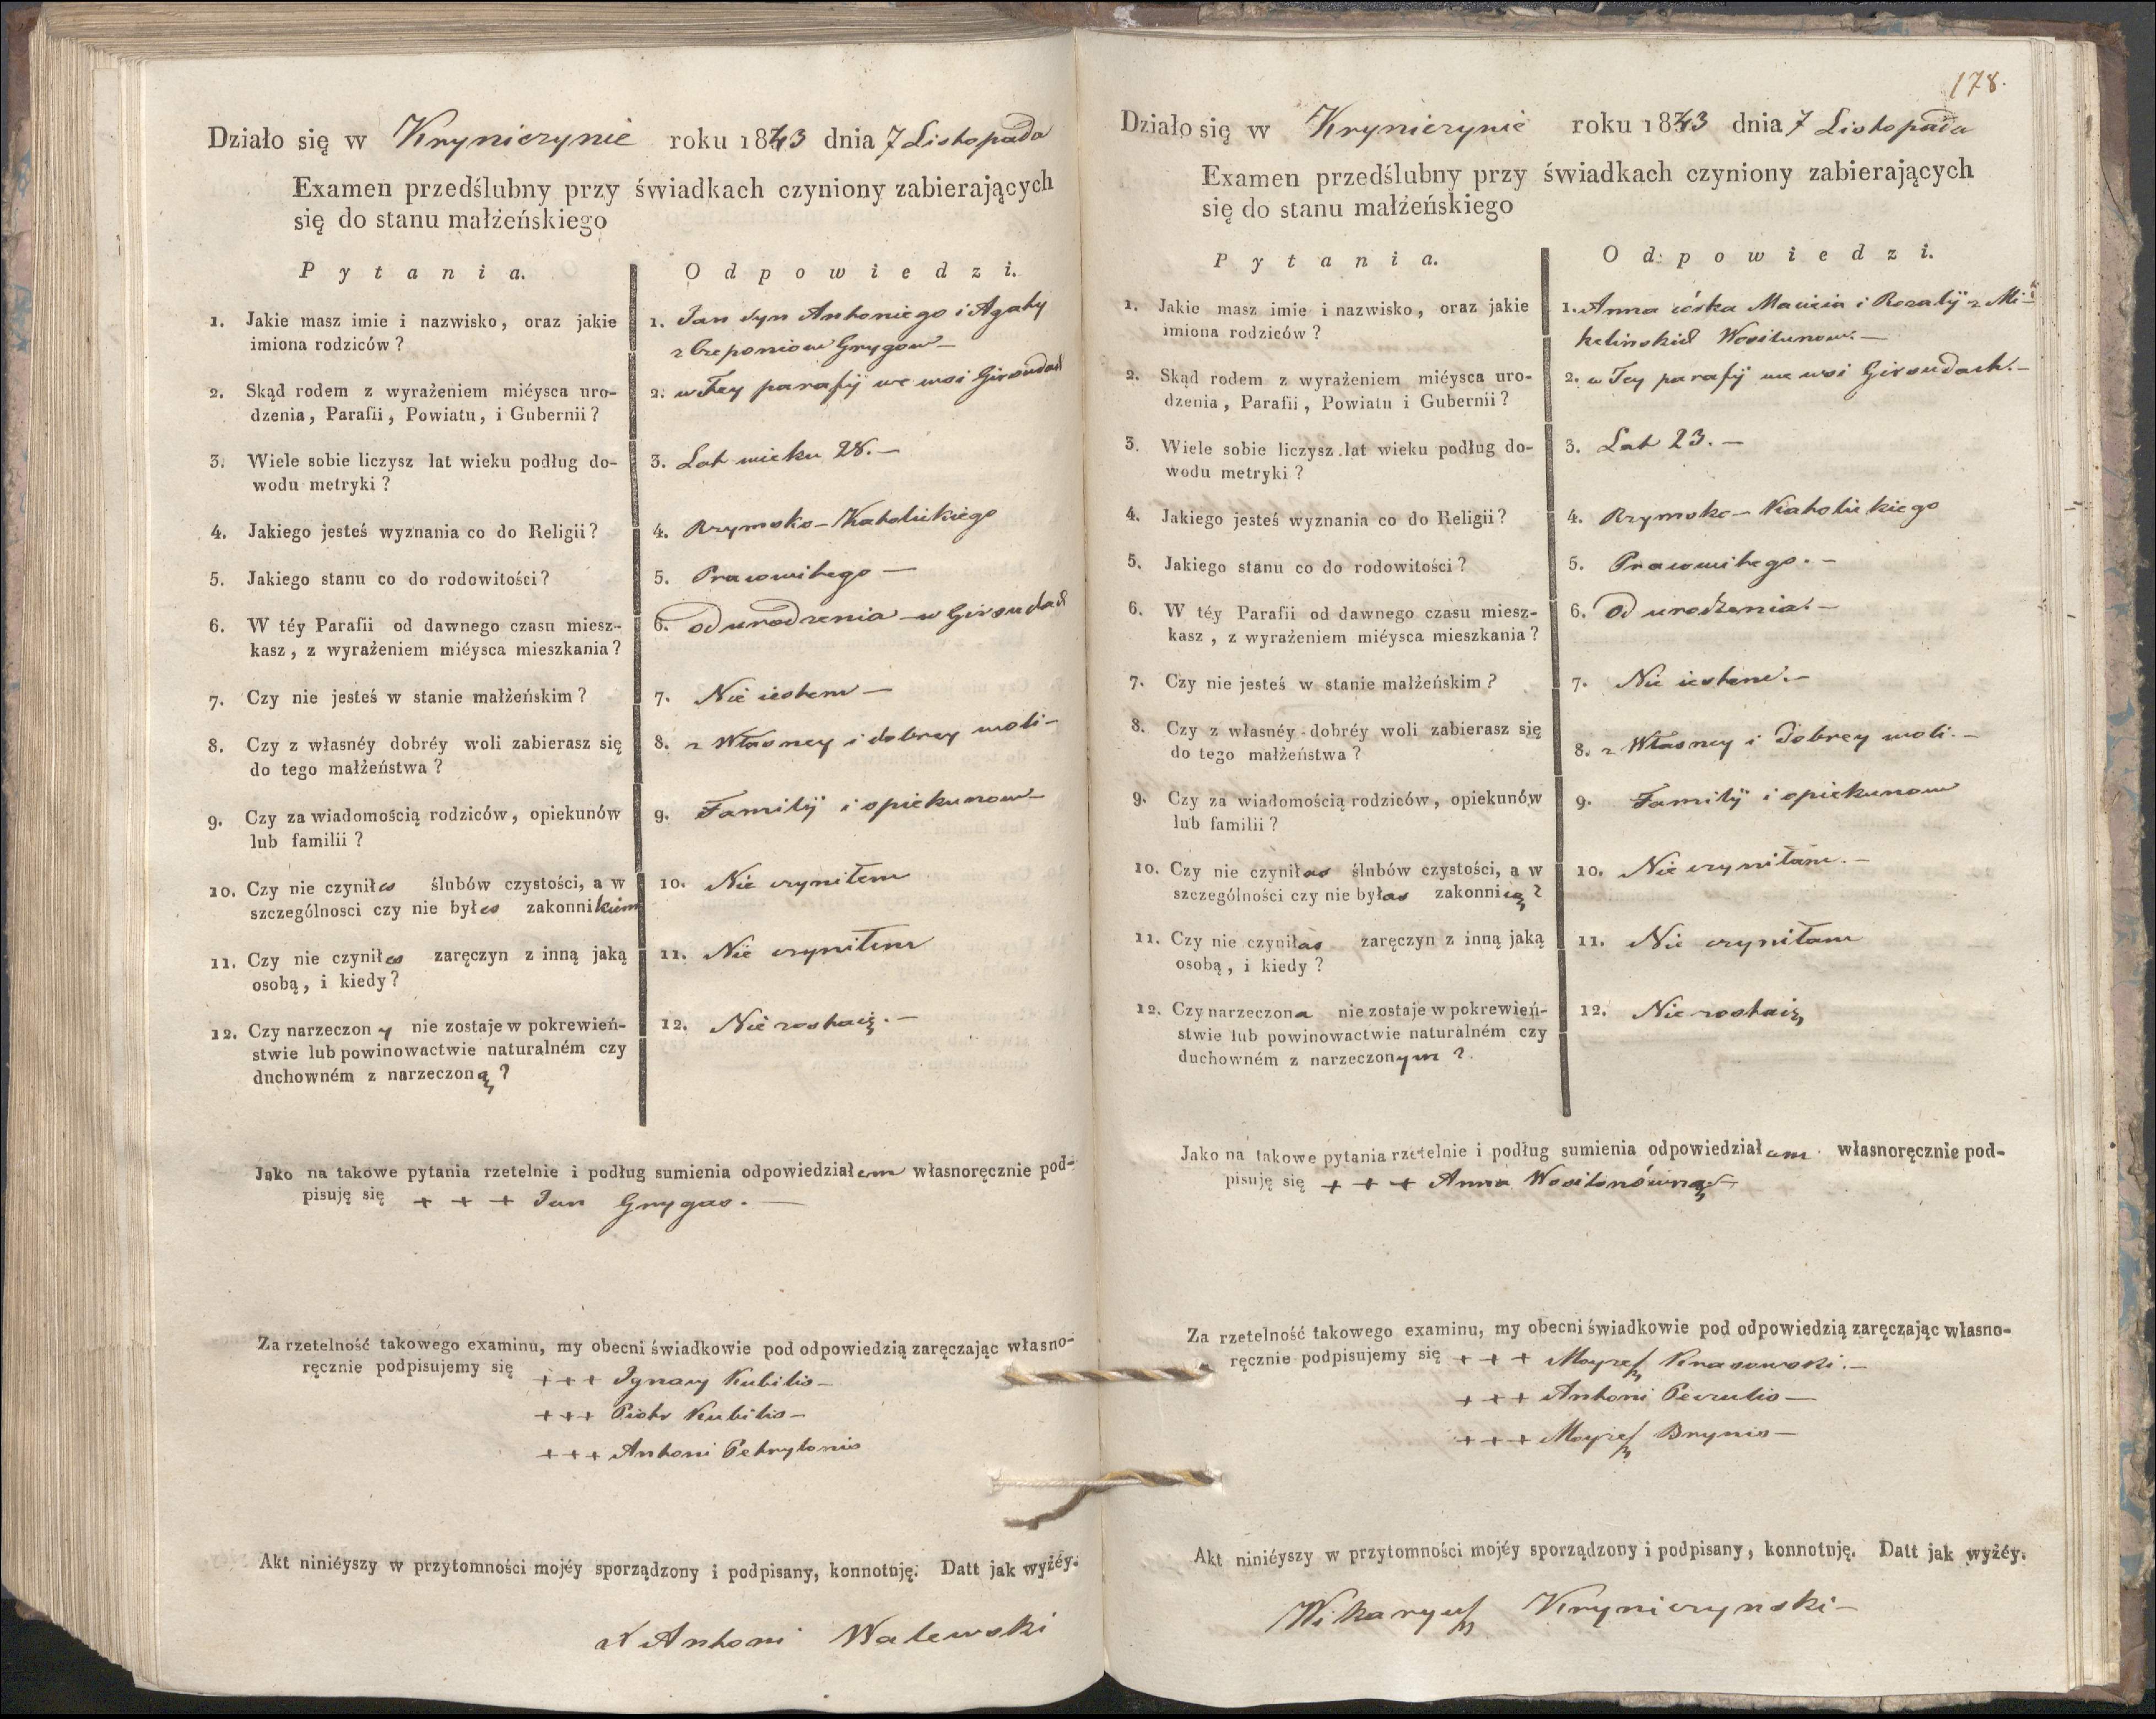 Działo się w Kryniczynie roku 1843 dnia 7 Listopada
Examen przedślubny przy świadkach czyniony zabierających
się do stanu małżeńskiego
Pytania. Odpowiedzi.
1. Jakie masz imie i nazwisko, oraz jakie
imiona rodziców?
1. Jan syn Antoniego i Agaty
z Grygow
2. Skąd rodem z wyrażeniem miéysca uro-
dzenia, Parafii, Powiatu, i Gubernii?
2. w Tey parafij we wsi Girsudach
3. Wiele sobie liczysz lat wieku podług do-
wodu metryki?
3. Lat wieku 28. —
4. Jakiego jesteś wyznania co do Religii?
4. Rzymsko-Katolickiego
5. Jakiego stanu co do rodowitości?
5. Prawowitego —
6. W téy Parafii od dawnego czasu miesz-
kasz, z wyrażeniem miéysca mieszkania?
6. od urodzenia w Girsudach
7. Czy nie jesteś w stanie małżeńskim?
7. Nie iestem —
8. Czy z własnéy dobréy woli zabierasz się
do tego małżeństwa?
8. z Własney i dobrey woli —
9. Czy za wiadomością rodziców, opiekunów
lub familii?
9. Familij i opiekunow —
10. Czy nie czyniłes ślubów czystości, a w
szczególnosci czy nie byłes zakonnikiem
10. Nie czyniłem
11. Czy nie czyniłes zaręczyn z inną jaką
osobą, i kiedy?
11. Nie czyniłem
12. Czy narzeczony nie zostaje w pokrewień-
stwie lub powinowactwie naturalném czy
duchowném z narzeczoną?
12. Nie zostaię. —
Jako na takowe pytania rzetelnie i podług sumienia odpowiedziałem własnoręcznie pod-
pisuję się + + + Jan Grygas. —
Za rzetelność takowego examinu, my obecni świadkowie pod odpowiedzią zaręczając własno-
ręcznie podpisujemy się + + + Jgnacy Kubilis —
+ + + Piotr Kubilis —
+ + + Antoni Petrylonis
Akt niniéyszy w przytomności mojéy sporządzony i podpisany, konnotuję. Datt jak wyżéy.
X Antoni Walewski
178.
Działo się w Kryniczynie roku 1843 dnia 7 Listopada
Examen przedślubny przy świadkach czyniony zabierających
się do stanu małżeńskiego
Pytania. Odpowiedzi.
1. Jakie masz imie i nazwisko, oraz jakie
imiona rodziców?
1. Anna córka Macieia i Rozalij z Mi-
kelinskich Wositunow. —
2. Skąd rodem z wyrażeniem miéysca uro-
dzenia, Parafii, Powiatu i Gubernii?
2. w Tey parafij we wsi Girsudach. —
3. Wiele sobie liczysz lat wieku podług do-
wodu metryki?
3. Lat 23. —
4. Jakiego jesteś wyznania co do Religii?
4. Rzymsko-Katolickiego
5. Jakiego stanu co do rodowitości?
5. Prawowitego. —
6. W téy Parafii od dawnego czasu miesz-
kasz, z wyrażeniem miéysca mieszkania?
6. Od urodzenia. —
7. Czy nie jesteś w stanie małżeńskim?
7. Nie iestem. —
8. Czy z własnéy dobréy woli zabierasz się
do tego małżeństwa?
8. z Własney i Dobrey woli. —
9. Czy za wiadomością rodziców, opiekunów
lub familii?
9. Familij i opiekunow
10. Czy nie czyniłas ślubów czystości, a w
szczególności czy nie byłas zakonnicą?
10. Nie czyniłam. —
11. Czy nie czyniłas zaręczyn z inną jaką
osobą, i kiedy?
11. Nie czyniłam
12. Czy narzeczona nie zostaje w pokrewień-
stwie lub powinowactwie naturalném czy
duchowném z narzeczonym?
12. Nie zostaię
Jako na takowe pytania rzetelnie i podług sumienia odpowiedziałam własnoręcznie pod-
pisuję się + + + Anna Wositonówna —
Za rzetelność takowego examinu, my obecni świadkowie pod odpowiedzią zaręczając własno-
ręcznie podpisujemy się + + + Moyzesz Krasowski. —
+ + + Antoni Peczulis —
+ + + Moyzesz Brynis —
Akt niniéyszy w przytomności mojéy sporządzony i podpisany, konnotuję. Datt jak wyżéy.
Wikaryusz Kryniczynski —